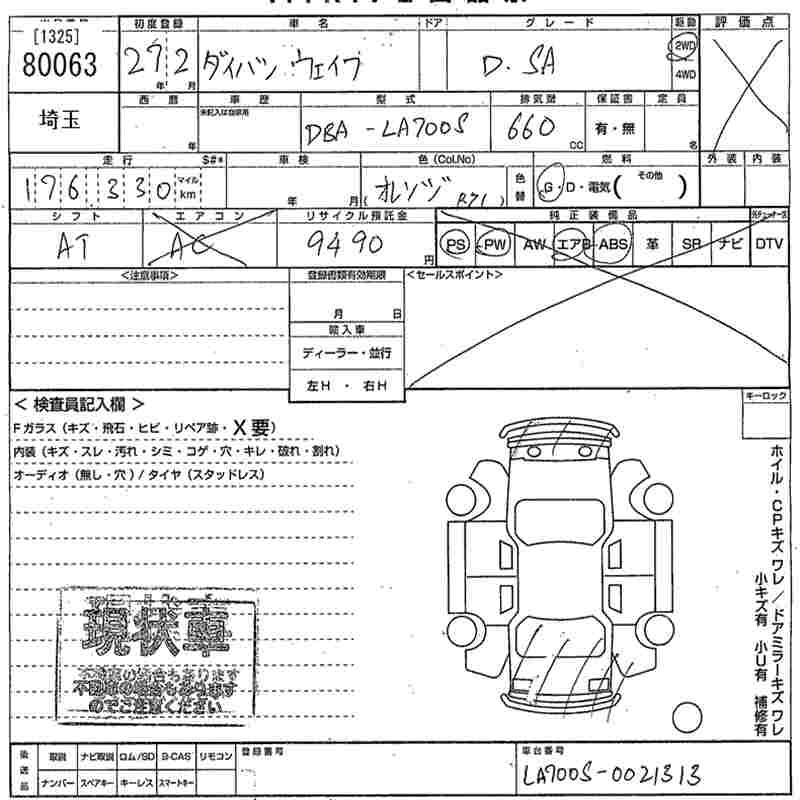 [1325]
80063
埼玉
初度登録
27 2
年 月
車名
ダイハツ ウェイク
ドア
グレード
D.SA
駆動
2WD
4WD
評価点
西暦
年
車歴
未記入は自家用
型式
DBA-LA700S
排気量
660
CC
保証書
有・無
定員
名
走行
S#*
176,330
マイル
km
車検
年 月
色(Col.No)
オレンジ R71
色替
燃料
G・D・電気( その他 )
外装 内装
シフト
AT
エアコン
AC
リサイクル預託金
9490
円
純正装備品
PS PW AW エアB ABS 革 SR ナビ DTV
<注意事項>
登録書類有効期限
月 日
輸入車
ディーラー・並行
左H・右H
<セールスポイント>
<検査員記入欄>
キーロック
Fガラス(キズ・飛石・ヒビ・リペア跡・X要)
内装(キズ・スレ・汚れ・シミ・コゲ・穴・キレ・破れ・割れ)
オーディオ(無し・穴)/タイヤ(スタッドレス)
ホイル・CPキズ ワレ/ドアミラーキズ ワレ
小キズ有 小U有 補修有
現状車
不動車の場合もあります
のでご注意ください
後送品
取説 ナビ取説 ロム/SD B-CAS リモコン
ナンバー スペアキー キーレス スマートキー
登録番号
車台番号
LA700S-0021313